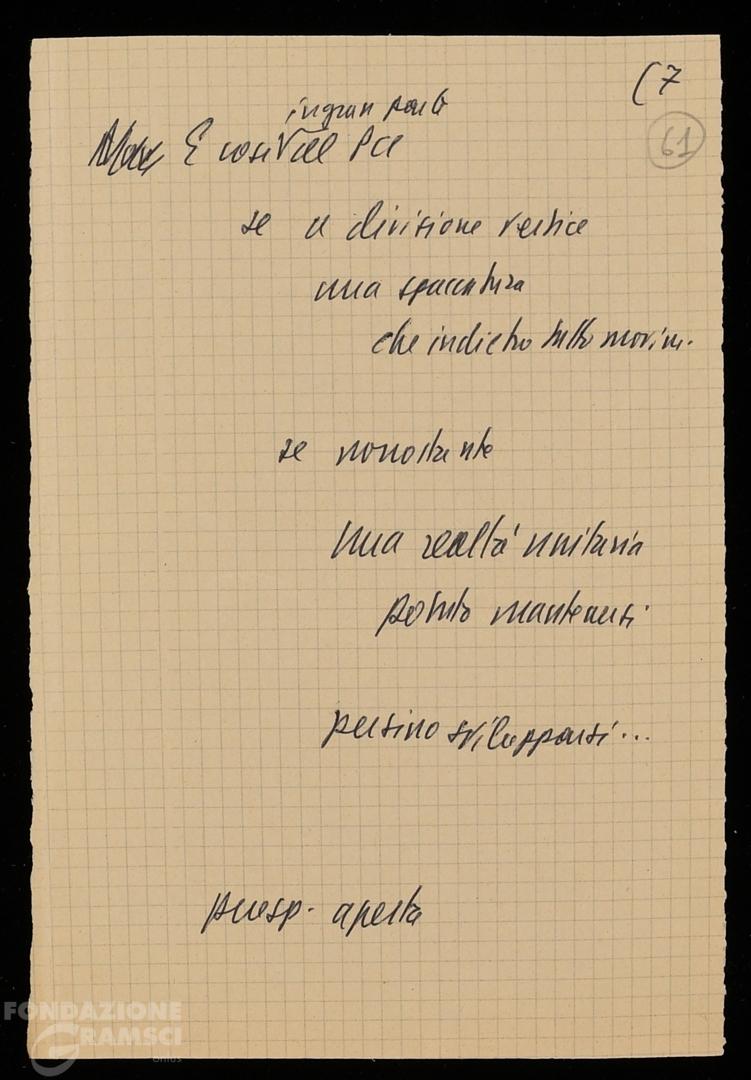 (7
61
in gran parte
E così del Pci
se a divisione vertice
una spaccatura
che indietro tutto movim.
se nonostante
una realtà unitaria
potuto mantenersi
persino svilupparsi...
prosp. aperta
FONDAZIONE
GRAMSCI
onlus